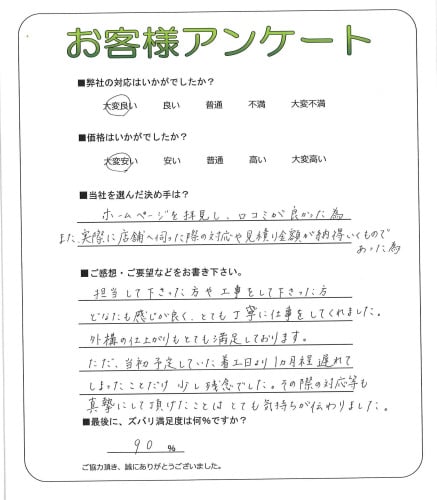 お客様アンケート
■弊社の対応はいかがでしたか？
大変良い　良い　普通　不満　大変不満
■価格はいかがでしたか？
大変安い　安い　普通　高い　大変高い
■当社を選んだ決め手は？
ホームページを拝見し、口コミが良かった為
また、実際に店舗へ伺った際の対応や見積り金額が納得いくもので
あった為
■ご感想・ご要望などをお書き下さい。
担当して下さった方や工事をして下さった方
どなたも感じが良く、とても丁寧に仕事をしてくれました。
外構の仕上がりもとても満足しております。
ただ、当初予定していた着工日より1カ月程遅れて
しまったことだけ少し残念でした。その際の対応等も
真摯にして頂けたことはとても気持ちが伝わりました。
■最後に、ズバリ満足度は何%ですか？
90 %
ご協力頂き、誠にありがとうございました。